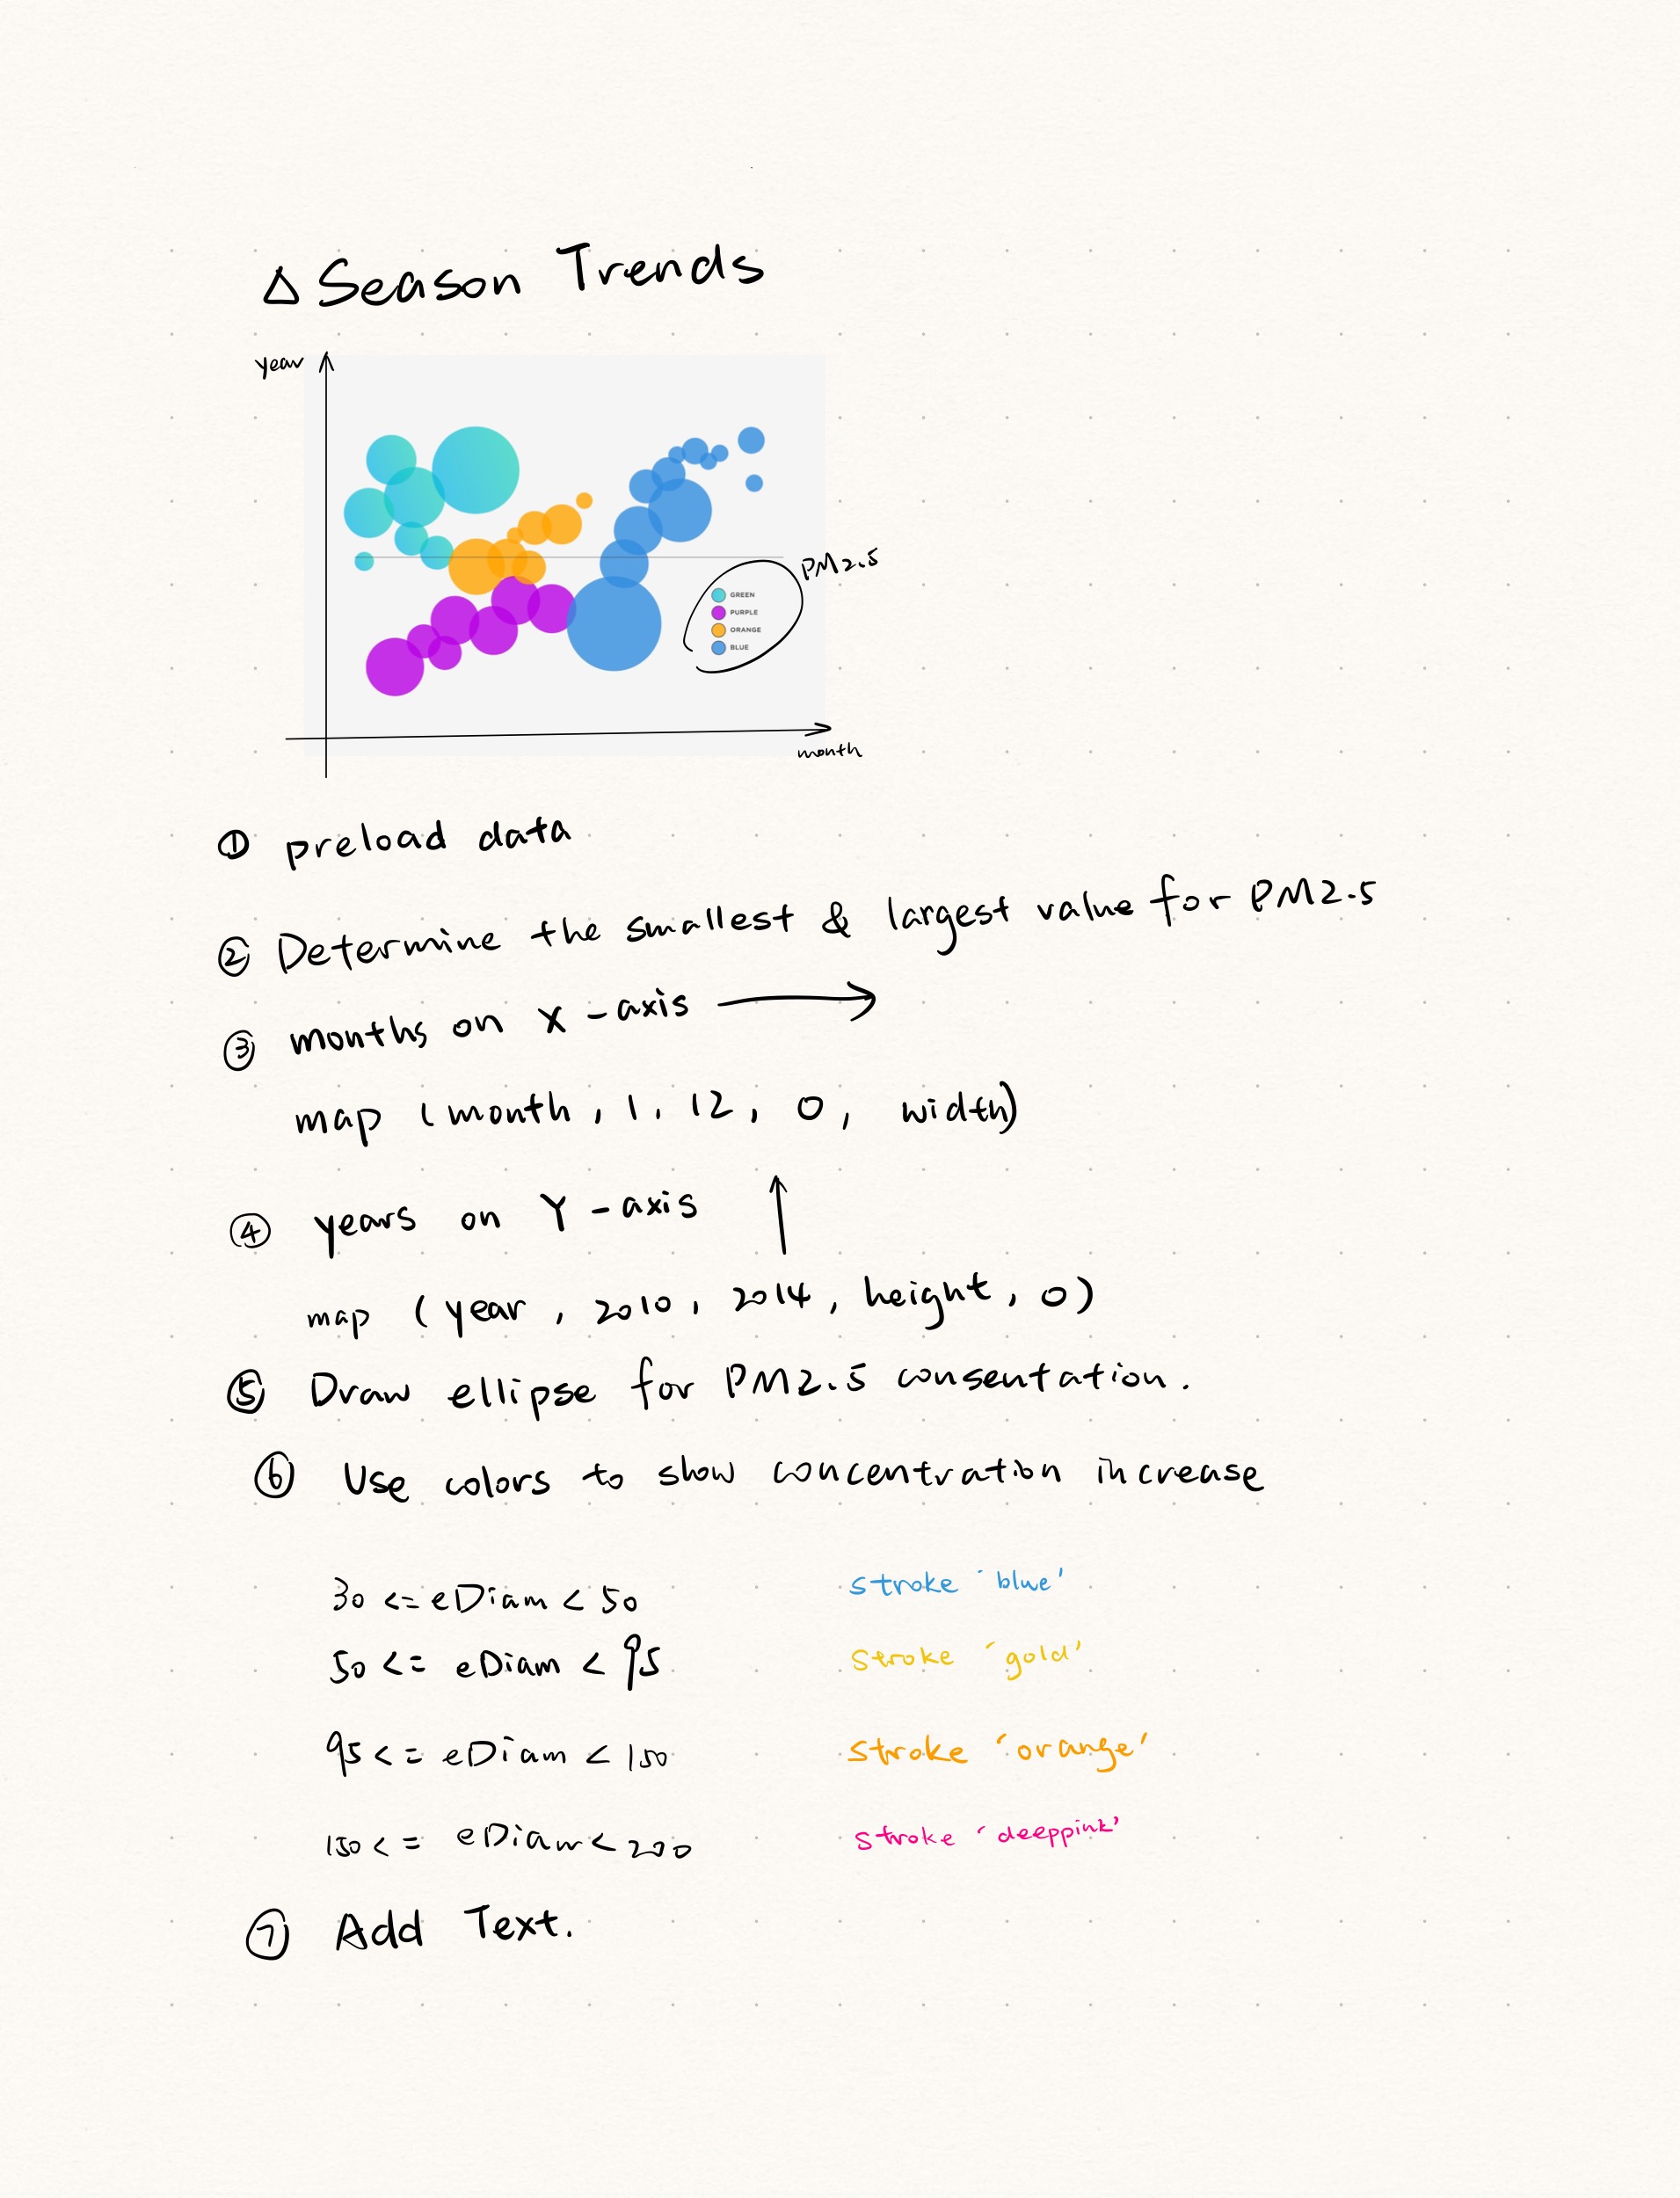 △ Season Trends
year
PM2.5
GREEN
PURPLE
ORANGE
BLUE
month
① preload data
② Determine the smallest & largest value for PM2.5
③ months on X-axis →
map (month, 1, 12, 0, width)
④ years on Y-axis ↑
map (year, 2010, 2014, height, 0)
⑤ Draw ellipse for PM2.5 consentation.
⑥ Use colors to show concentration increase
30 <= eDiam < 50 stroke 'blue'
50 <= eDiam < 95 stroke 'gold'
95 <= eDiam < 150 stroke 'orange'
150 <= eDiam < 200 stroke 'deeppink'
⑦ Add Text.